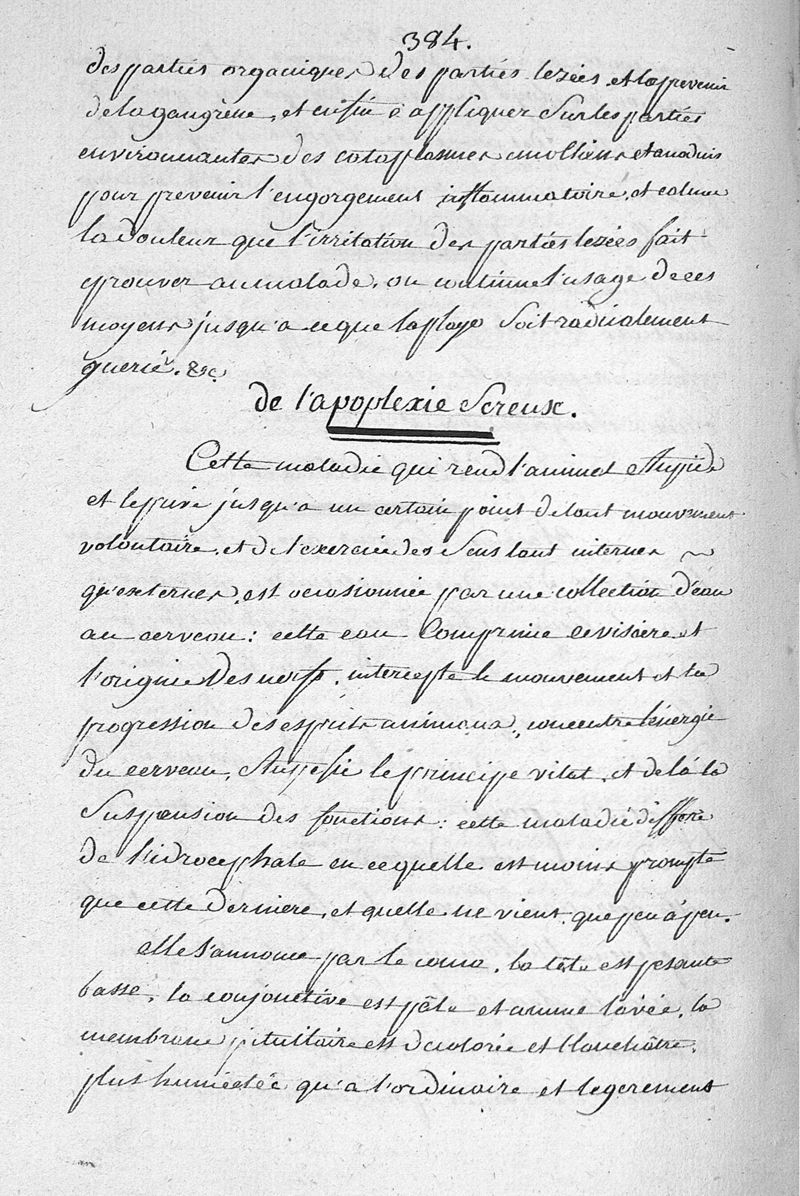 384.
des parties organiques des parties lezées et la prevenir
de la gangrène, et enfin à appliquer sur les parties
environnantes des cataplasmes emolliens et anodins
pour prevenir l'engorgement inflammatoire, et calmer
la douleur que l'irritation des parties lezées fait
eprouver au malade, on continue l'usage de ces
moyens jusqu'a ce que la playe soit radicalement
guerie. &c
de l'apoplexie Sereux.
Cette maladie qui rend l'animal stupide
et le prive jusqu'a un certain point de tout mouvement
volontaire, et de l'exercice des sens tant internes
qu'externes, est occasionnée par une collection d'eau
au cerveau: cette eau comprime ce viscere et
l'origine des nerfs, intercepte le mouvement et la
progression des esprits animaux, concentre l'énergie
du cerveau, stupefie le principe vital, et de là la
suspension des fonctions: cette maladie differe
de l'idrocephale en ce quelle est moins prompte
que cette derniere, et quelle ne vient que peu à peu.
elle s'annonce par le coma, la tête est pesante
basse, la conjonctive est pâle et comme lavée, la
membrane pituitaire est decolorée et blanchâtre,
plus humectée qu'a l'ordinaire et legerement